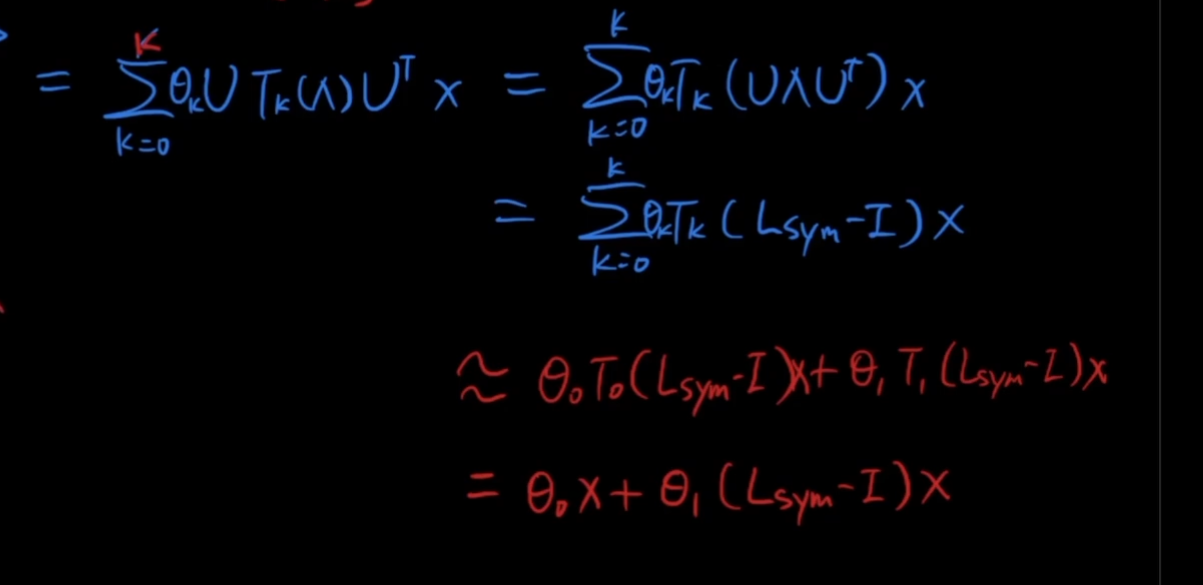 = ∑_{k=0}^{K} θ_k U T_k(Λ) U^T x = ∑_{k=0}^{K} θ_k T_k (U Λ U^T) x
= ∑_{k=0}^{K} θ_k T_k (L_sym - I) x
≈ θ_0 T_0 (L_sym - I) x + θ_1 T_1 (L_sym - I) x
= θ_0 x + θ_1 (L_sym - I) x